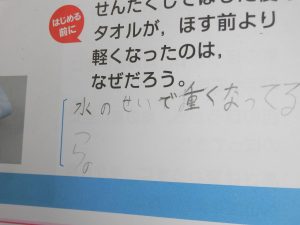 はじめる
前に
せんたくしてほした後の
タオルが，ほす前より
軽くなったのは，
なぜだろう。
水のせいで重くなってる
から